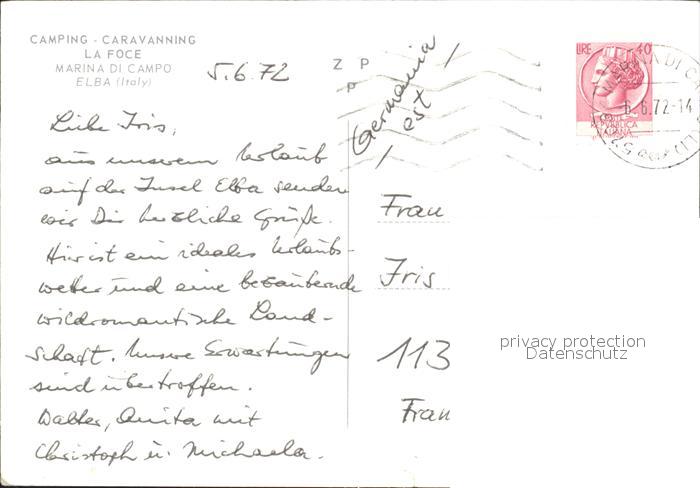 CAMPING - CARAVANNING
LA FOCE
MARINA DI CAMPO
ELBA (Italy)
5.6.72
Liebe Iris,
aus unserem Urlaub
auf der Insel Elba senden
wir Dir herzliche Grüße.
Hier ist ein ideales Urlaubs-
wetter und eine bezaubernde
wildromantische Land-
schaft. Unsere Erwartungen
sind übertroffen.
Walter, Anita mit
Christoph u. Michaela.
Z P
P
Germania
est
LIRE 40
REPVBBLICA
ITALIANA
MARINA DI CA
6.6.72-14
Frau
Iris
113
Frau
privacy protection
Datenschutz